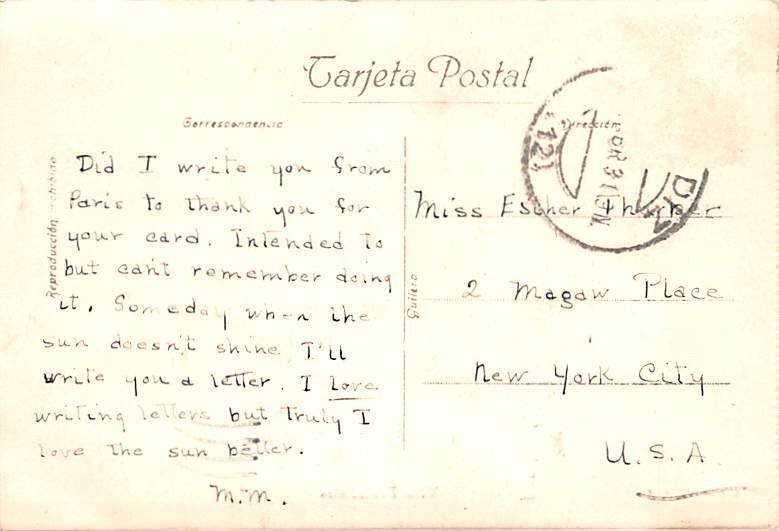 Tarjeta Postal
Correspondencia
Dirección
Reproducción prohibida
Did I write you from
Paris to thank you for
your card. Intended to
but can't remember doing
it. Someday when the
sun doesn't shine I'll
write you a letter. I love
writing letters but truly I
love the sun better.
M.M.
Miss Esther Thurber
2 Magaw Place
New York City
U.S.A.